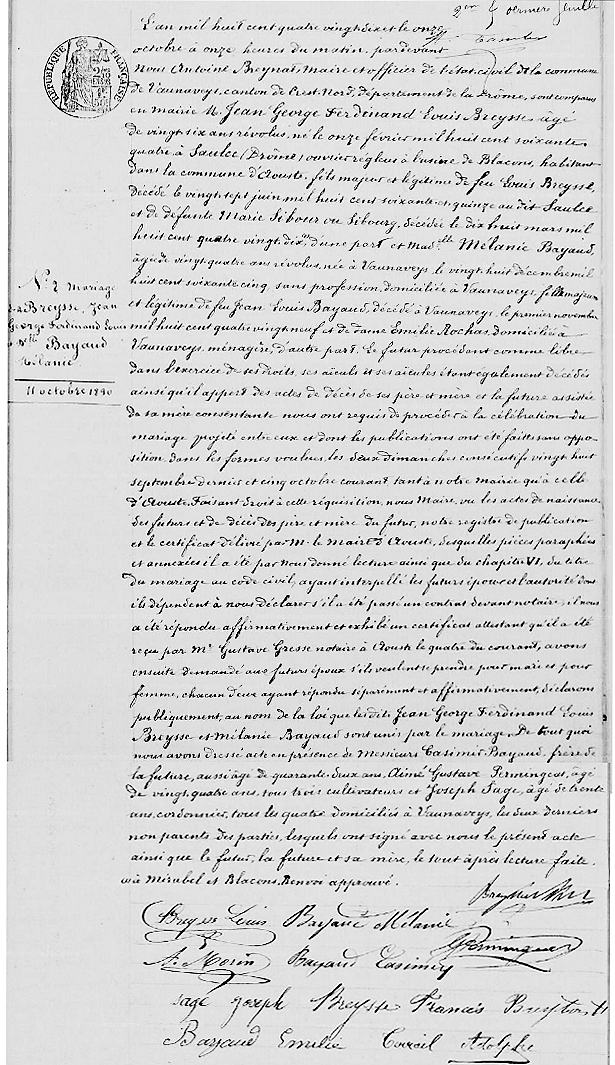 2me & dernière feuille
L'an mil huit cent quatre vingt dix et le onze
octobre à onze heures du matin, pardevant
Nous Antoine Breynat, Maire et officier de l'état civil de la commune
de Vaunaveys, canton de Crest-Nord, département de la Drôme, sont comparus
en mairie M. Jean George Ferdinand Louis Breysse, âgé
de vingt six ans révolus, né le onze février mil huit cent soixante
quatre à Saulce, Drôme, ouvrier régleur à l'usine de Blacons, habitant
dans la commune d'Aouste, fils majeur et légitime de feu Louis Breysse,
décédé le vingt sept juin mil huit cent soixante et quinze au dit Saulce
et de défunte Marie Sibour ou Sibourg, décédée le dix huit mars mil
huit cent quatre vingt dix, d'une part et Mad.elle Mélanie Bayaud,
âgée de vingt quatre ans révolus, née à Vaunaveys, le vingt huit décembre mil
huit cent soixante cinq, sans profession, domiciliée à Vaunaveys, fille majeure
et légitime de feu Jean Louis Bayaud, décédé à Vaunaveys, le premier novembre
mil huit cent quatre vingt neuf et de dame Emilie Rochas, domiciliée à
Vaunaveys, ménagère, d'autre part. Le futur procédant comme libre
dans l'exercice de ses droits, ses aïeuls et ses aïeules étant également décédés
ainsi qu'il appert des actes de décès de ses père et mère et la future assistée
de sa mère consentante nous ont requis de procéder à la célébration du
mariage projeté entre eux et dont les publications ont été faites sans oppo-
sition dans les formes voulues, les deux dimanches consécutifs vingt huit
septembre dernier et cinq octobre courant tant à notre mairie qu'à celle
d'Aouste. Faisant droit à cette réquisition, nous Maire, vu les actes de naissance
des futurs et de décès des père et mère du futur, notre registre de publication
et le certificat délivré par M. le Maire d'Aouste, desquelles pièces paraphées
et annexées il a été par nous donné lecture ainsi que du chapitre VI, du titre
du mariage au code civil, ayant interpellé les futurs époux et l'autorité dont
ils dépendent à nous déclarer s'il a été passé un contrat devant notaire, il nous
a été répondu affirmativement et exhibé un certificat attestant qu'il a été
reçu par Me Gustave Gresse notaire à Aouste le quatre du courant, avons
ensuite demandé aux futurs époux s'ils veulent se prendre pour mari et pour
femme, chacun d'eux ayant répondu séparément et affirmativement, déclarons
publiquement, au nom de la loi que lesdits Jean George Ferdinand Louis
Breysse et Mélanie Bayaud sont unis par le mariage. De tout quoi
nous avons dressé acte en présence de Messieurs Casimir Bayaud, frère de
la future, aussi âgé de quarante deux ans, Aimé Gustave Permingeat, âgé
de vingt quatre ans, tous trois cultivateurs et Joseph Sage, âgé de trente
ans, cordonnier, tous les quatre domiciliés à Vaunaveys, les deux derniers
non parents des parties, lesquels ont signé avec nous le présent acte
ainsi que le futur, la future et sa mère, le tout après lecture faite.
Mirabel et Blacons. Renvoi approuvé.
N° 2 Mariage
Breysse, Jean
George Ferdinand Louis
Mlle Bayaud
Mélanie
11 octobre 1890
RÉPUBLIQUE FRANÇAISE
Breysse Louis Bayaud Mélanie
Permingeat
A. Morin Bayaud Casimir
Sage Joseph Breysse Francis
Bayaud Emilie Adolphe